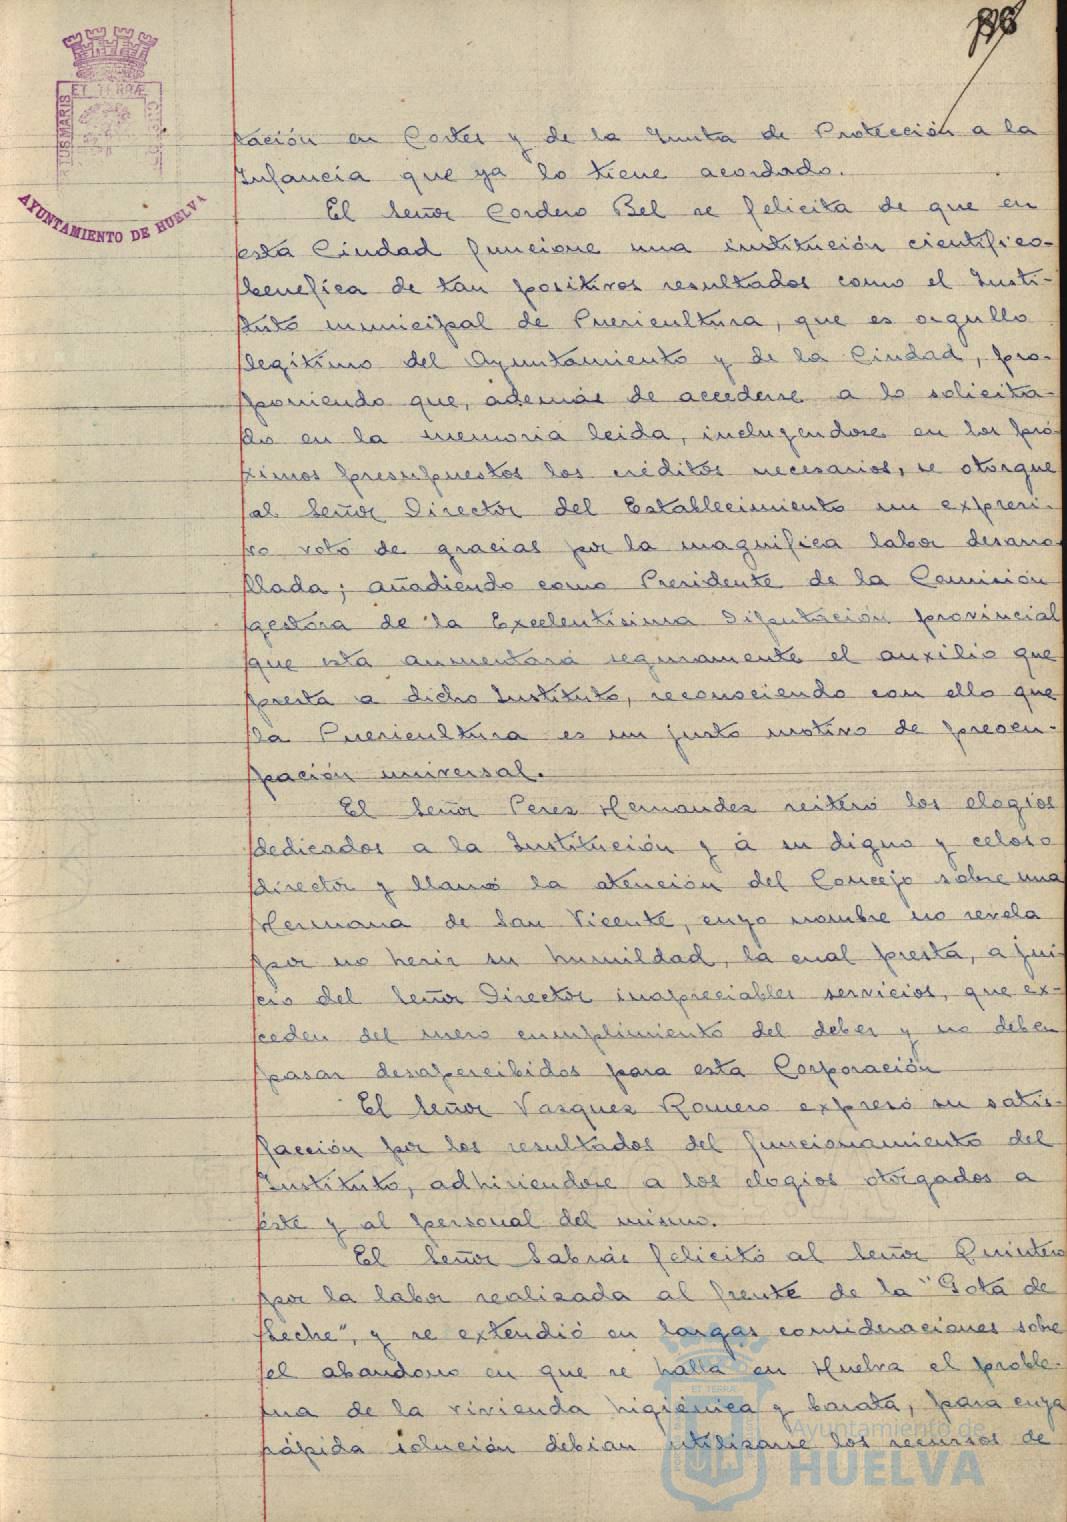 86
ET TERRÆ
TUS MARIS
AYUNTAMIENTO DE HUELVA
tación en Cortes y de la Junta de Protección a la
Infancia que ya lo tiene acordado.
El Señor Cordero Bel se felicita de que en
esta Ciudad funcione una institución científico-
benéfica de tan positivos resultados como el Insti-
tuto municipal de Puericultura, que es orgullo
legítimo del Ayuntamiento y de la Ciudad, pro-
poniendo que, además de accederse a lo solicita-
do en la memoria leida, incluyendose en los pró-
ximos presupuestos los créditos necesarios, se otorgue
al Señor Director del Establecimiento un expresi-
vo voto de gracias por la magnífica labor desarro-
llada; añadiendo como Presidente de la Comisión
gestora de la Excelentísima Diputación provincial
que esta aumentará seguramente el auxilio que
presta a dicho Instituto, reconociendo con ello que
la Puericultura es un justo motivo de preocu-
pación universal.
El Señor Perez Hernandez reiteró los elogios
dedicados a la Institución y á su digno y celoso
director y llamó la atención del Concejo sobre una
Hermana de San Vicente, cuyo nombre no revela
por no herir su humildad, la cual presta, a jui-
cio del Señor Director inapreciables servicios, que ex-
ceden del mero cumplimiento del deber y no deben
pasar desapercibidos para esta Corporación
El Señor Vazquez Romero expresó su satis-
facción por los resultados del funcionamiento del
Instituto, adhiriendose a los elogios otorgados a
éste y al personal del mismo.
El Señor Sabrás felicitó al Señor Quintero
por la labor realizada al frente de la "Gota de
Leche", y se extendió en largas consideraciones sobre
el abandono en que se halla en Huelva el proble-
ma de la vivienda higiénica y barata, para cuya
rápida solución debian utilizarse los recursos de
Ayuntamiento de
HUELVA